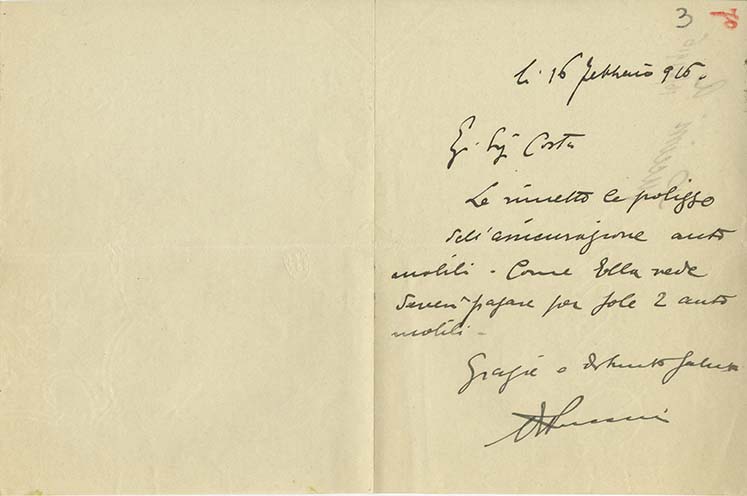 3
li 16 febbraio 916.
Eg. Sigʳ Costa
Le rimetto le polizze
dell'assicurazione auto
mobili - Come Ella vede
dovrei pagare per sole 2 auto
mobili -
Grazie e distinto saluto